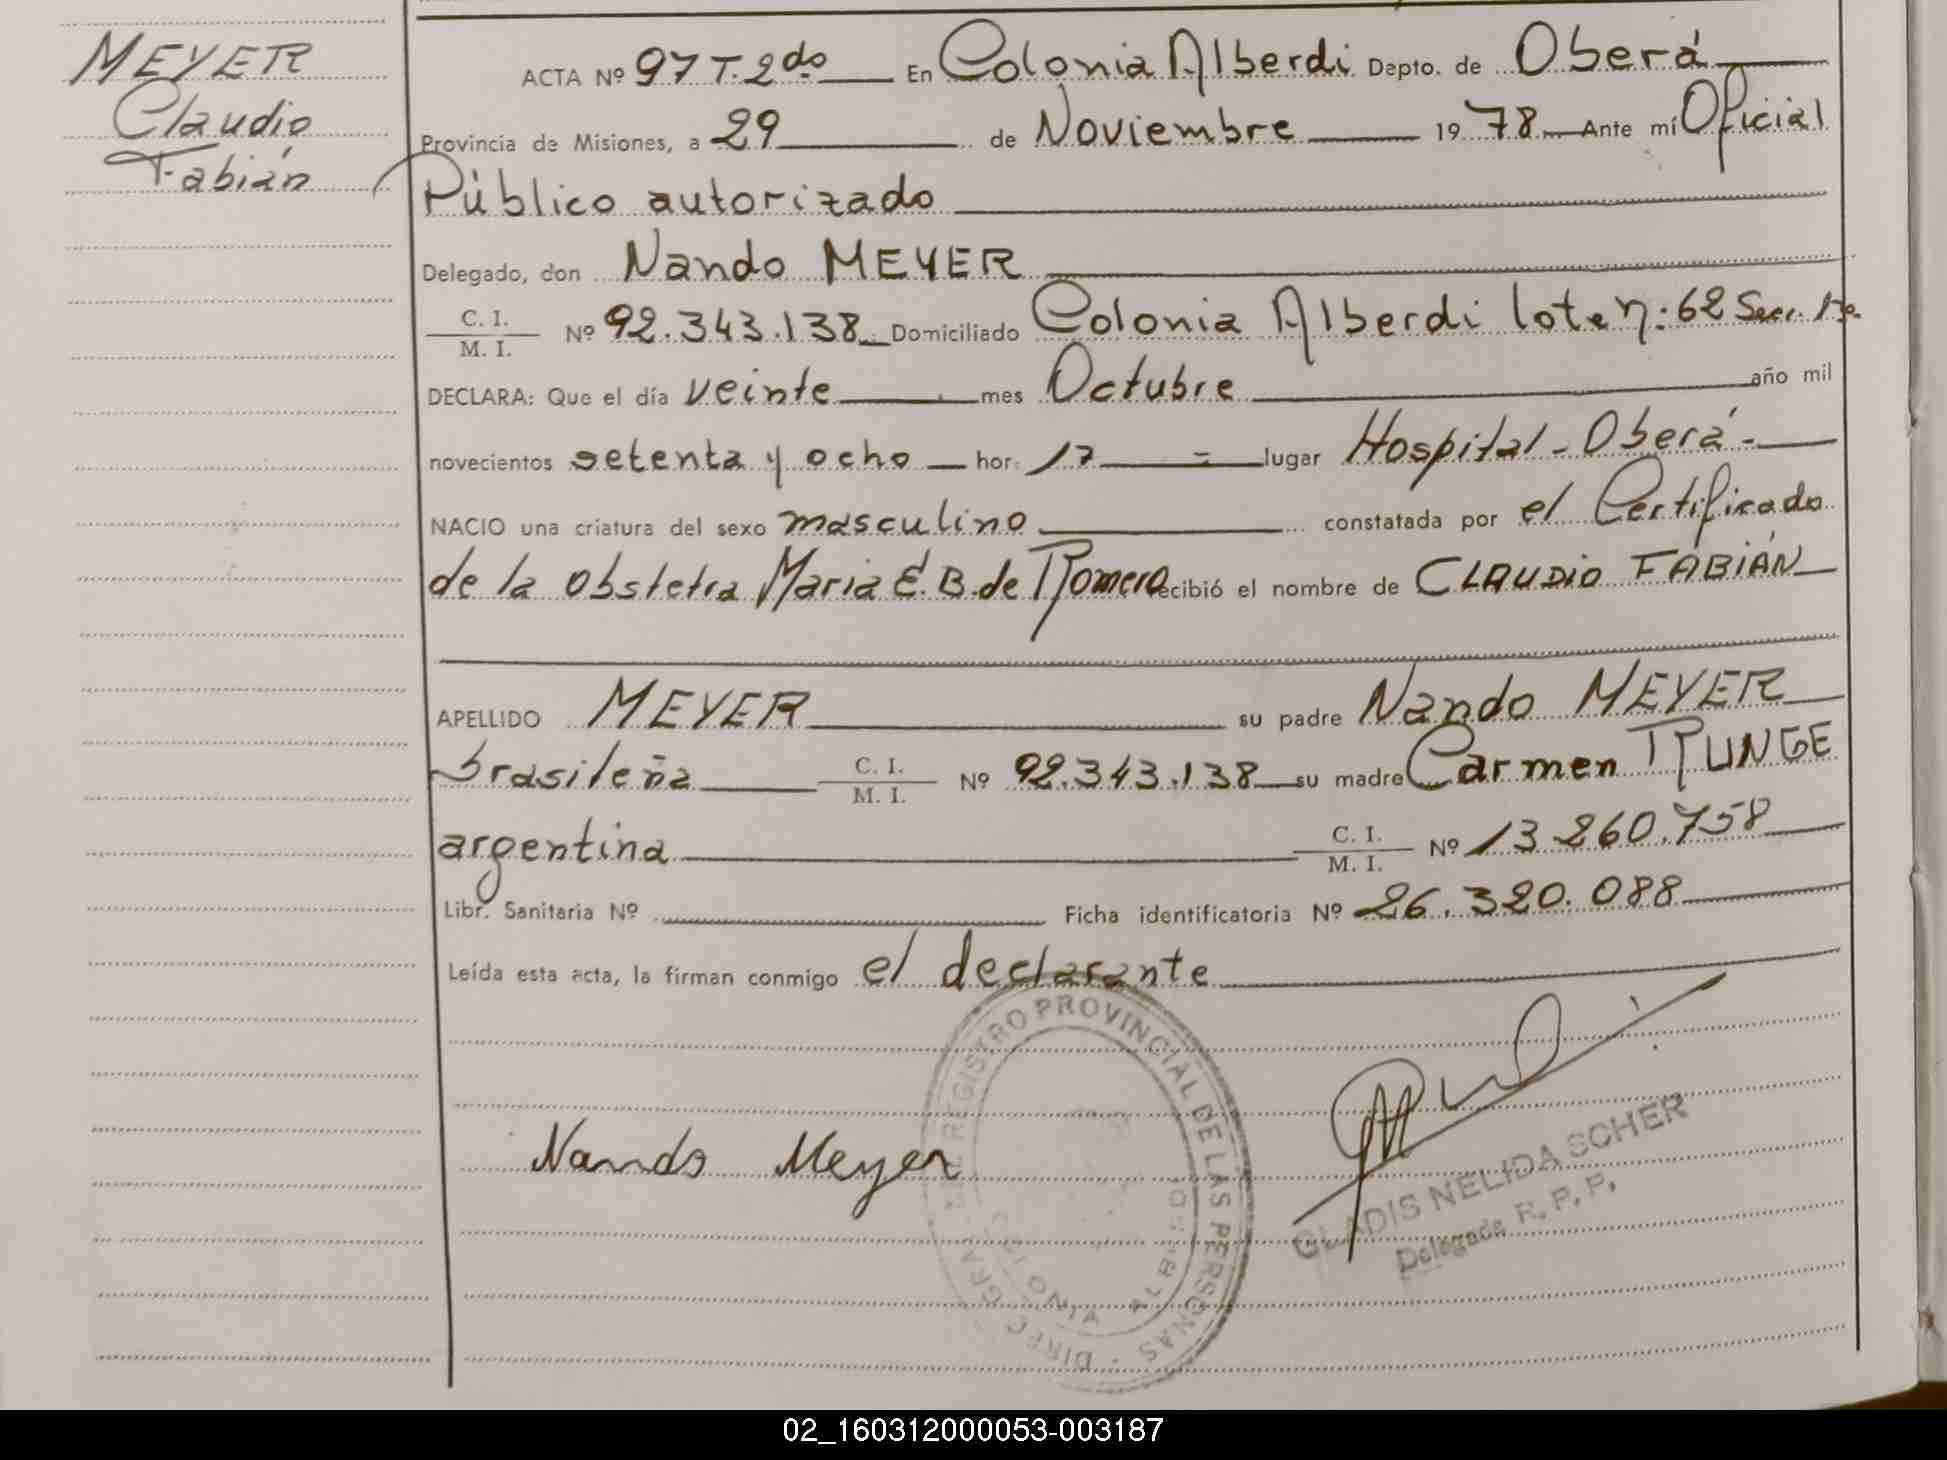 MEYER
Claudio
Fabián
ACTA Nº 97 T. 2do En Colonia Alberdi Depto. de Oberá
Provincia de Misiones, a 29 de Noviembre 1978 Ante mí Oficial
Público autorizado
Delegado, don Nando MEYER
C. I.
M. I. Nº 92.343.138 Domiciliado Colonia Alberdi lote n: 62 Secc. 1ª
DECLARA: Que el día veinte mes Octubre año mil
novecientos setenta y ocho hor: 17 lugar Hospital - Oberá -
NACIO una criatura del sexo masculino constatada por el Certificado
de la obstetra Maria E. B. de Romero recibió el nombre de CLAUDIO FABIÁN
APELLIDO MEYER su padre Nando MEYER
brasileña C. I.
M. I. Nº 92.343.138 su madre Carmen RUNGE
argentina C. I.
M. I. Nº 13 260.758
Libr. Sanitaria Nº Ficha identificatoria Nº 26.320.088
Leída esta acta, la firman conmigo el declarante
DIREC. GRAL. DEL REGISTRO PROVINCIAL DE LAS PERSONAS
COLONIA ALBERDI
Nando Meyer
GLADIS NELIDA SCHER
Delegada R. P. P.
02_160312000053-003187